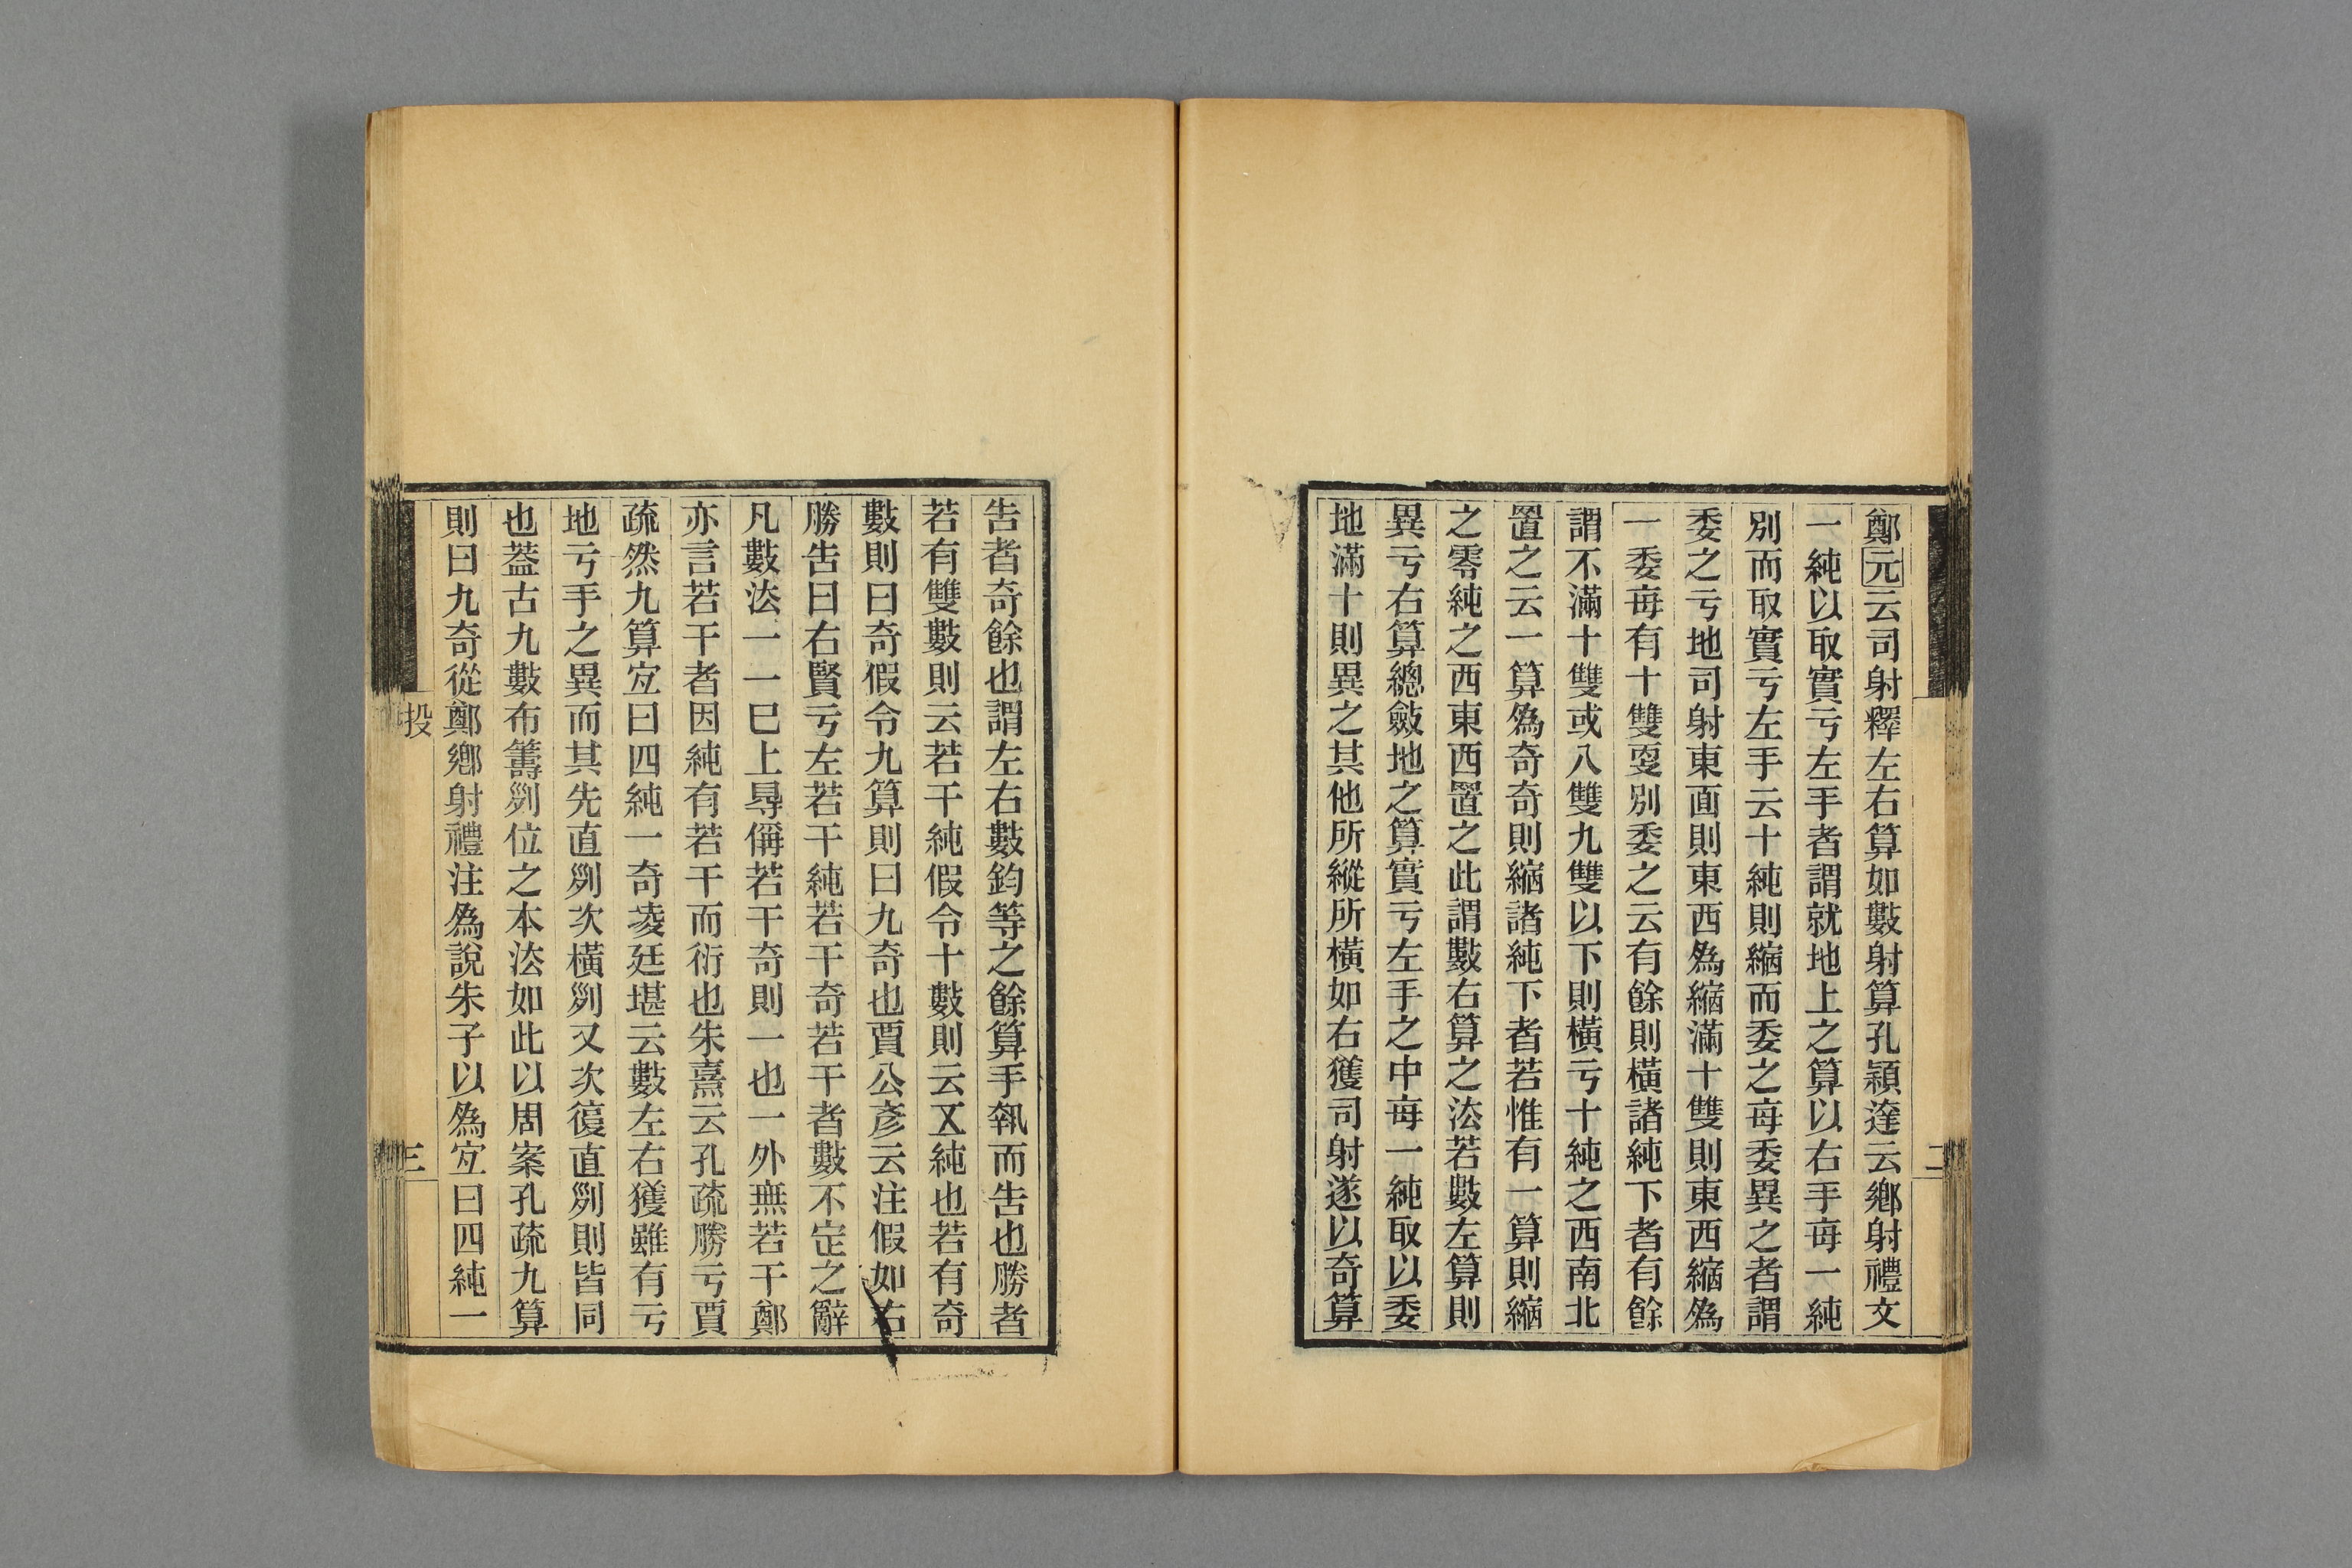 鄭元云司射釋左右算如數射算孔穎達云鄉射禮文
一純以取實亏左手者謂就地上之算以右手每一純
別而取實亏左手云十純則縮而委之每委異之者謂
委之亏地司射東面則東西爲縮滿十雙則東西縮爲
一委每有十雙更別委之云有餘則橫諸純下者有餘
謂不滿十雙或八雙九雙以下則橫亏十純之西南北
置之云一算爲奇奇則縮諸純下者若惟有一算則縮
之零純之西東西置之此謂數右算之㳒若數左算則
異亏右算總斂地之算實亏左手之中每一純取以委
地滿十則異之其他所縱所橫如右獲司射遂以奇算
二
告者奇餘也謂左右數鈞等之餘算手執而告也勝者
若有雙數則云若干純假令十數則云五純也若有奇
數則曰奇假令九算則曰九奇也賈公彥云注假如右
勝告曰右賢亏左若干純若干奇若干者數不定之辭
凡數㳒一一巳上㝵偁若干奇則一也一外無若干鄭
亦言若干者因純有若干而衍也朱熹云孔疏勝亏賈
疏然九算宐曰四純一奇凌廷堪云數左右獲雖有亏
地亏手之異而其先直列次橫列又次復直列則皆同
也蓋古九數布籌列位之本㳒如此以周案孔疏九算
則曰九奇從鄭鄉射禮注爲說朱子以爲宐曰四純一
投
三